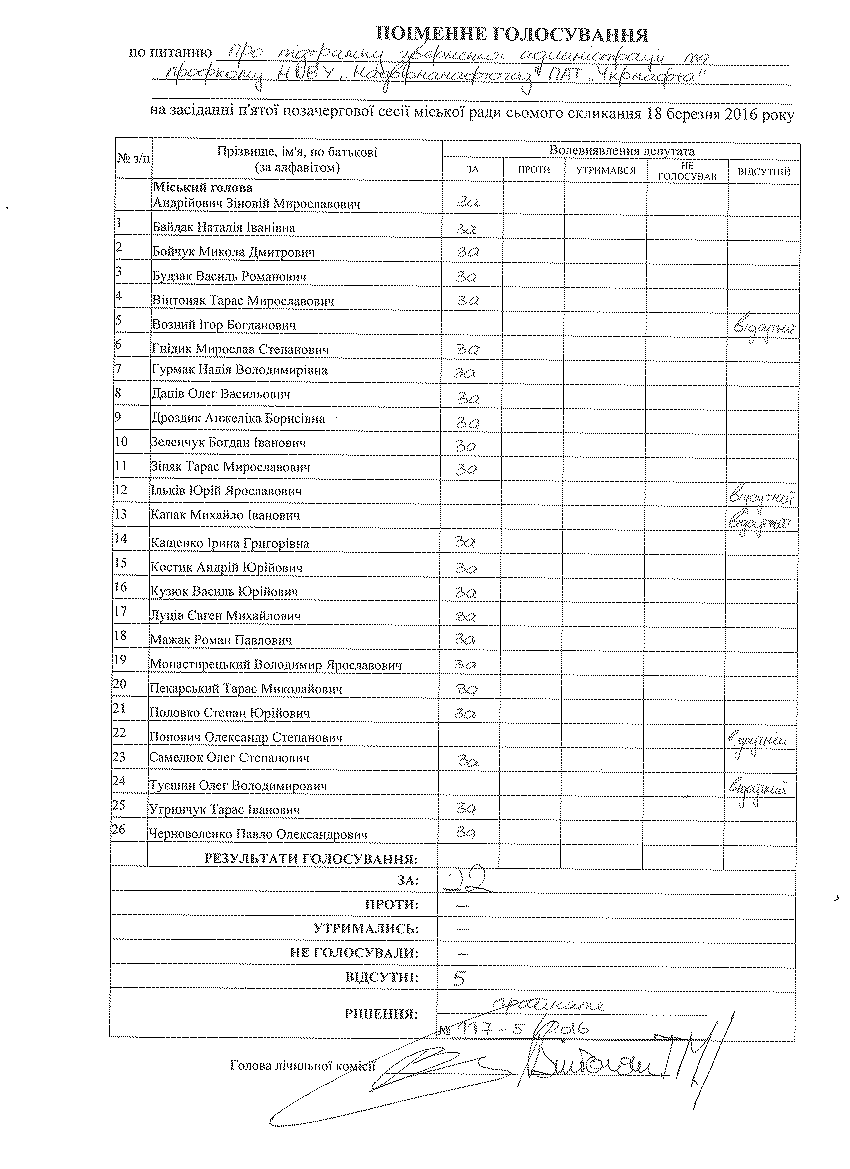 ПОІМЕННЕ ГОЛОСУВАННЯ
по питанню Про підтримку звернення адміністрації та
профкому НГВУ „Надвірнанафтогаз" ПАТ „Укрнафта"
на засіданні п'ятої позачергової сесії міської ради сьомого скликання 18 березня 2016 року
№ з/п Прізвище, ім'я, по батькові (за алфавітом) Волевиявлення депутата
ЗА ПРОТИ УТРИМАВСЯ НЕ ГОЛОСУВАВ ВІДСУТНІЙ
Міський голова
Андрійович Зіновій Мирославович за
1 Байдак Наталія Іванівна за
2 Бойчук Микола Дмитрович за
3 Будзак Василь Романович за
4 Вінтоняк Тарас Мирославович за
5 Возний Ігор Богданович відсутній
6 Гнідик Мирослав Степанович за
7 Гурмак Надія Володимирівна за
8 Даців Олег Васильович за
9 Дроздик Анжеліка Борисівна за
10 Зеленчук Богдан Іванович за
11 Зіняк Тарас Мирославович за
12 Ільків Юрій Ярославович відсутній
13 Капак Михайло Іванович відсутній
14 Кащенко Ірина Григорівна за
15 Костик Андрій Юрійович за
16 Кузюк Василь Юрійович за
17 Луща Євген Михайлович за
18 Мажак Роман Павлович за
19 Монастирецький Володимир Ярославович за
20 Пекарський Тарас Миколайович за
21 Половко Степан Юрійович за
22 Попович Олександр Степанович відсутній
23 Самелюк Олег Степанович за
24 Туєшин Олег Володимирович відсутній
25 Угринчук Тарас Іванович за
26 Черноволенко Павло Олександрович за
РЕЗУЛЬТАТИ ГОЛОСУВАННЯ:
ЗА: 22
ПРОТИ: –
УТРИМАЛИСЬ: –
НЕ ГОЛОСУВАЛИ: –
ВІДСУТНІ: 5
РІШЕННЯ: прийняте
№ 117-5/2016
Голова лічильної комісії Вінтоняк Т М